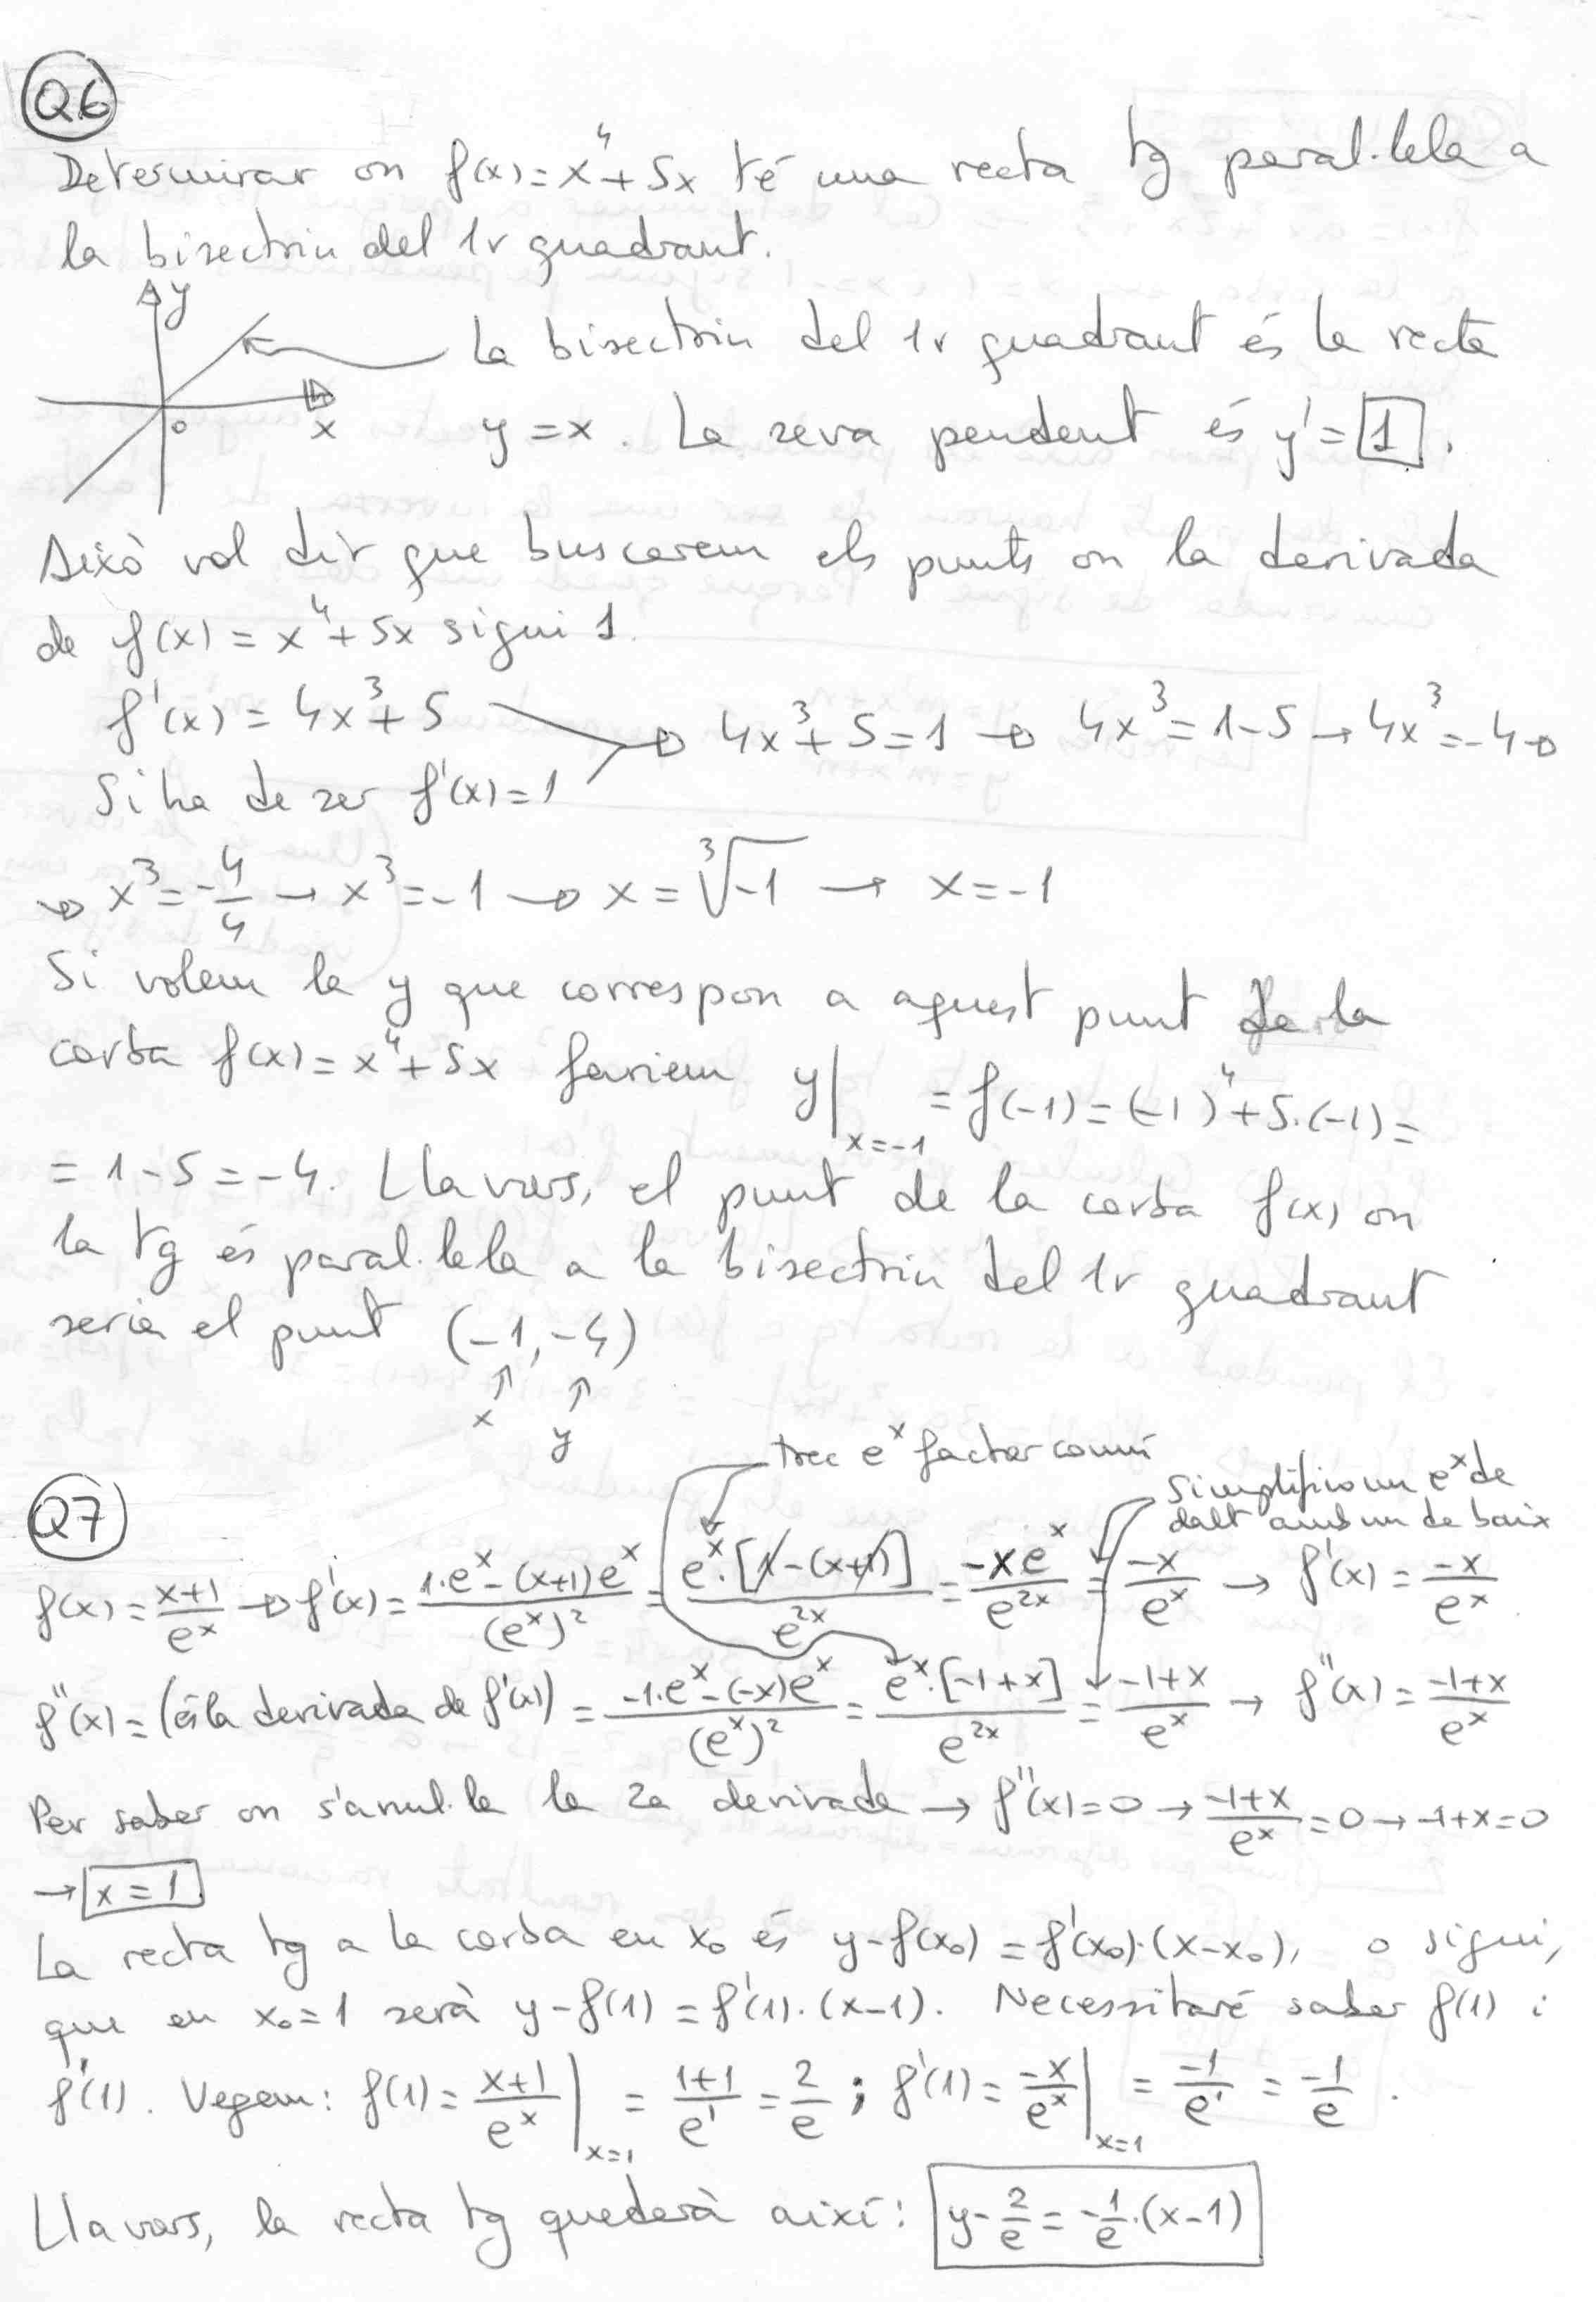 Q6
Determinar on f(x)=x⁴+5x té una recta tg paral·lela a
la bisectriu del 1r quadrant.
y
La bisectriu del 1r quadrant és la recta
0 x
y=x. La seva pendent és y'=1.
Això vol dir que buscarem els punts on la derivada
de f(x)=x⁴+5x sigui 1.
f'(x)=4x³+5 → 4x³+5=1 → 4x³=1-5 → 4x³=-4 →
Si ha de ser f'(x)=1
→ x³=-4/4 → x³=-1 → x=∛-1 → x=-1
Si volem la y que correspon a aquest punt de la
corba f(x)=x⁴+5x faríem y|x=-1 =f(-1)=(-1)⁴+5·(-1)=
=1-5=-4. Llavors, el punt de la corba f(x) on
la tg és paral·lela a la bisectriu del 1r quadrant
seria el punt (-1,-4)
x y
trec eˣ factor comú
Simplifico un eˣ de
dalt amb un de baix
Q7
f(x)=(x+1)/eˣ → f'(x)=(1·eˣ-(x+1)eˣ)/(eˣ)²=(eˣ·[1-(x+1)])/e²ˣ=(-xeˣ)/e²ˣ=-x/eˣ → f'(x)=-x/eˣ
f''(x)=(és la derivada de f'(x))=(-1·eˣ-(-x)eˣ)/(eˣ)²=(eˣ·[-1+x])/e²ˣ=(-1+x)/eˣ → f''(x)=(-1+x)/eˣ
Per saber on s'anul·la la 2a derivada → f''(x)=0 → (-1+x)/eˣ=0 → -1+x=0
→ x=1.
La recta tg a la corba en x₀ és y-f(x₀)=f'(x₀)·(x-x₀), o sigui,
que en x₀=1 serà y-f(1)=f'(1)·(x-1). Necessitaré saber f(1) i
f'(1). Vegem: f(1)=(x+1)/eˣ|x=1 =(1+1)/e¹=2/e; f'(1)=-x/eˣ|x=1 =-1/e¹=-1/e.
Llavors, la recta tg quedarà així: y-2/e=-1/e·(x-1)